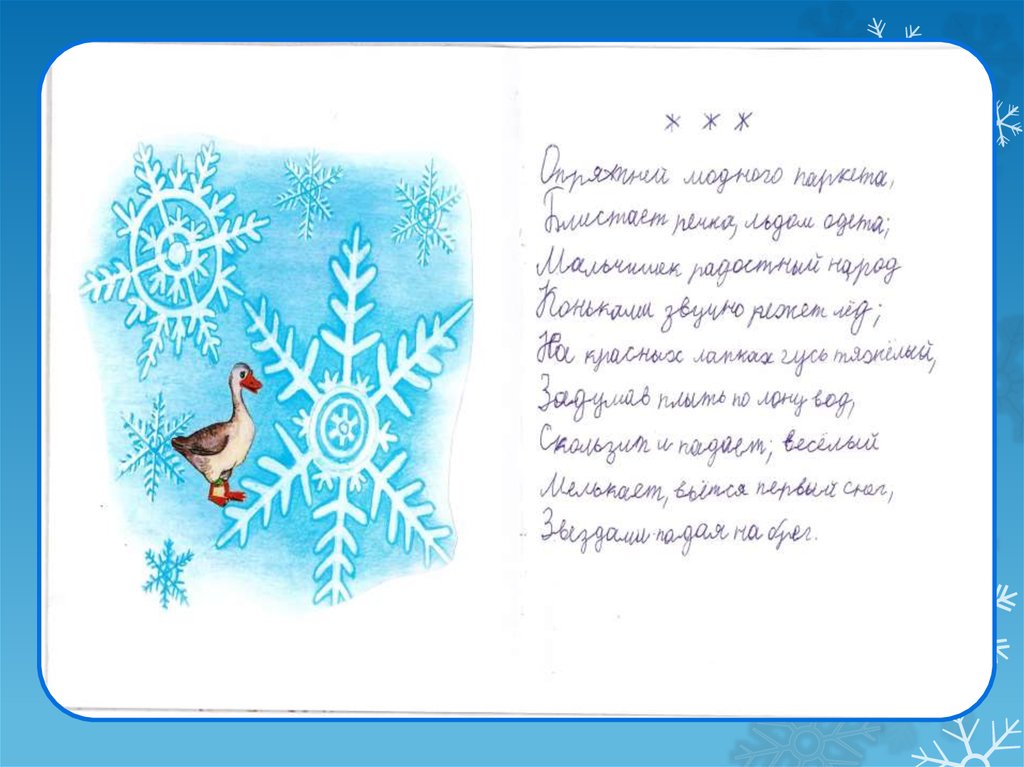 * * *
Опрятней модного паркета,
Блистает речка, льдом одета;
Мальчишек радостный народ
Коньками звучно режет лёд;
На красных лапках гусь тяжёлый,
Задумав плыть по лону вод,
Скользит и падает; весёлый
Мелькает, вьётся первый снег,
Звездами падая на брег.